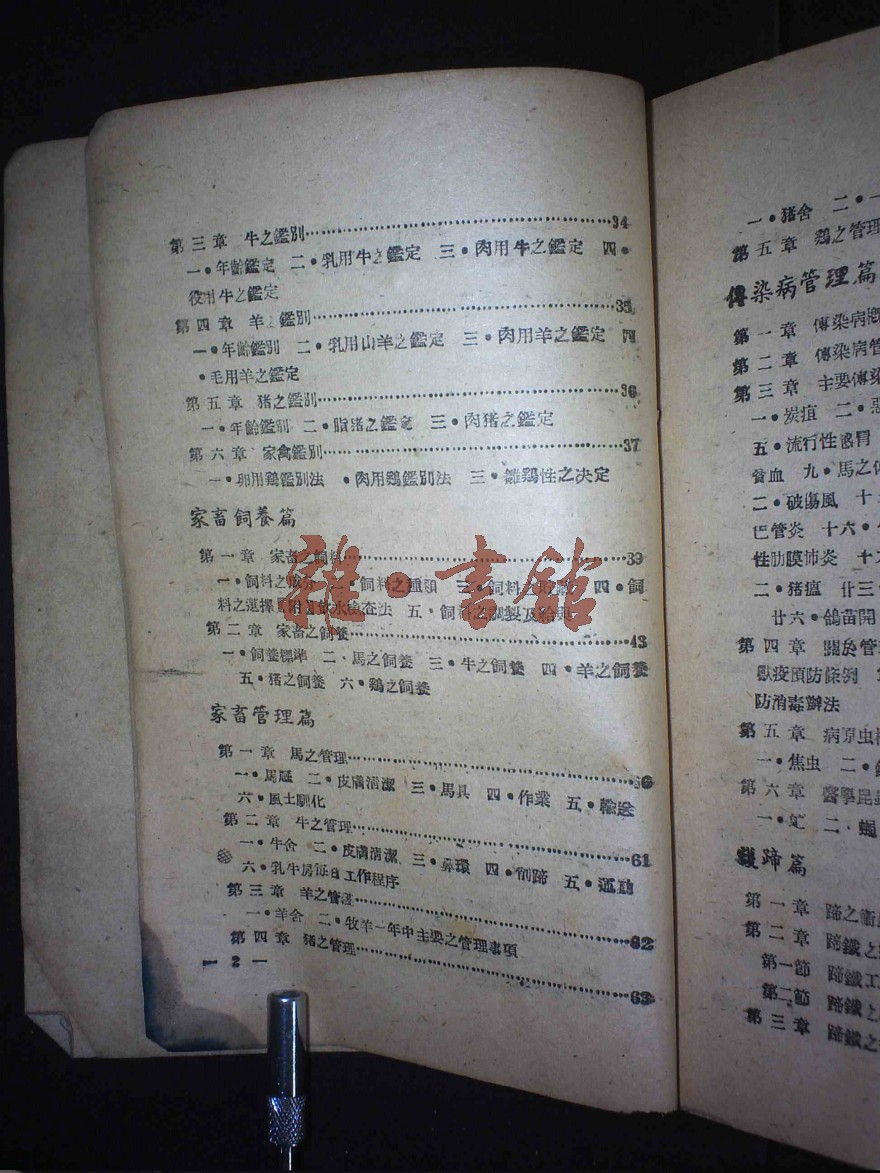 第三章 牛之鑑別…………34
一•年齡鑑定 二•乳用牛之鑑定 三•肉用牛之鑑定 四•
役用牛之鑑定
第四章 羊 鑑別…………35
一•年齡鑑別 二•乳用山羊之鑑定 三•肉用羊之鑑定 四
•毛用羊之鑑定
第五章 猪之鑑別…………36
一•年齡鑑別 二•脂猪之鑑定 三•肉猪之鑑定
第六章 家禽鑑別…………37
一•卵用鷄鑑別法 •肉用鷄鑑別法 三•雛鷄性之决定
家畜飼養篇
第一章 家畜之飼料…………39
一•飼料之成分 二•飼料之種類 三•飼料之貯藏 四•飼
料之選擇【附】飲水檢查法 五•飼料之調製及給與
第二章 家畜之飼養…………43
一•飼養標準 二•馬之飼養 三•牛之飼養 四•羊之飼養
五•猪之飼養 六•鷄之飼養
家畜管理篇
第一章 馬之管理…………56
一•馬廐 二•皮膚清潔 三•馬具 四•作業 五•輸送
六•風土馴化
第二章 牛之管理…………61
一•牛舍 二•皮膚清潔 三•鼻環 四•削蹄 五•運動
六•乳牛房每日工作程序
第三章 羊之管理…………62
一•羊舍 二•牧羊一年中主要之管理事項
第四章 猪之管理…………63
— 2 —
雜•書館
一•猪舍 二•
第五章 鷄之管理
傳染病管理篇
第一章 傳染病概
第二章 傳染病管
第三章 主要傳染
一•炭疽 二•惡
五•流行性感冒
貧血 九•馬之傳
二•破傷風 十
巴管炎 十六•
性肋膜肺炎 十
二•猪瘟 廿三•
廿六•鴿苗開
第四章 關於管
獸疫預防條例
防消毒辦法
第五章 病原虫
一•焦虫 二•
第六章 醫學昆虫
一•虻 二•蠅
護蹄篇
第一章 蹄之衞
第二章 蹄鐵之
第一節 蹄鐵工
第二節 蹄鐵之
第三章 蹄鐵之